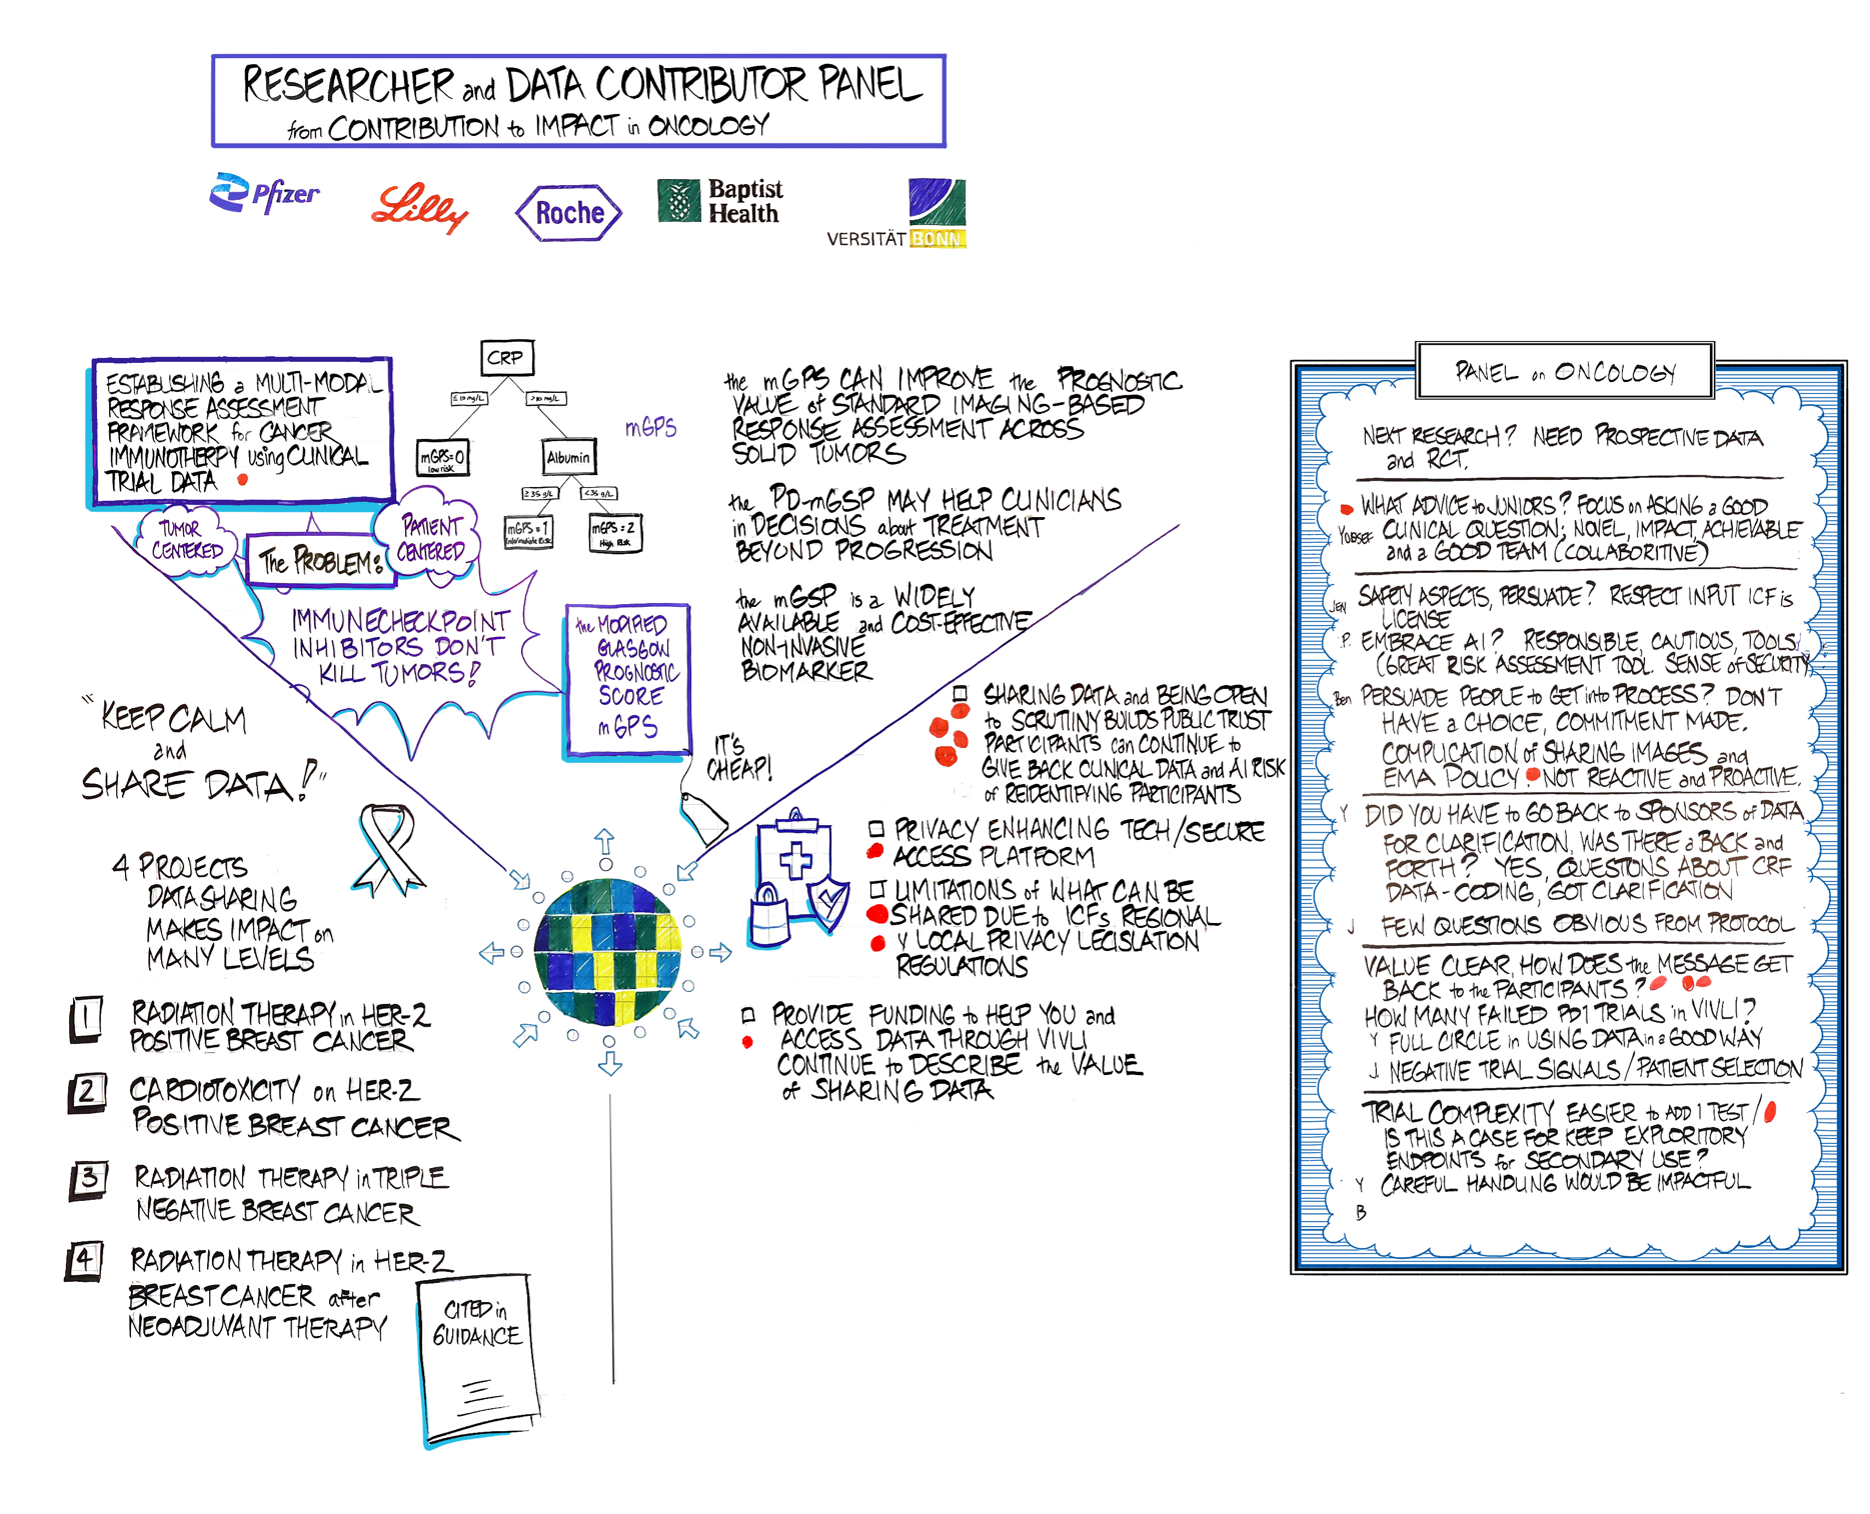 RESEARCHER and DATA CONTRIBUTOR PANEL
from CONTRIBUTION to IMPACT in ONCOLOGY
Pfizer
Lilly
Roche
Baptist
Health
VERSITÄT BONN
ESTABLISHING a MULTI-MODAL
RESPONSE ASSESSMENT
FRAMEWORK for CANCER
IMMUNOTHERPY using CLINICAL
TRIAL DATA
TUMOR
CENTERED
The PROBLEM:
PATIENT
CENTERED
IMMUNECHECKPOINT
INHIBITORS DON'T
KILL TUMORS!
CRP
≤10 mg/L
>10 mg/L
mGPS=0
low risk
Albumin
≥35 g/L
<35 g/L
mGPS=1
Intermediate Risk
mGPS=2
High Risk
mGPS
the MODIFIED
GLASGOW
PROGNOSTIC
SCORE
mGPS
IT'S
CHEAP!
the mGPS CAN IMPROVE the PROGNOSTIC
VALUE of STANDARD IMAGING-BASED
RESPONSE ASSESSMENT ACROSS
SOLID TUMORS
the PD-mGSP MAY HELP CLINICIANS
in DECISIONS about TREATMENT
BEYOND PROGRESSION
the mGSP is a WIDELY
AVAILABLE and COST-EFFECTIVE
NON-INVASIVE
BIOMARKER
"KEEP CALM
and
SHARE DATA!"
4 PROJECTS
DATA SHARING
MAKES IMPACT on
MANY LEVELS
1 RADIATION THERAPY in HER-2
POSITIVE BREAST CANCER
2 CARDIOTOXICITY on HER-2
POSITIVE BREAST CANCER
3 RADIATION THERAPY in TRIPLE
NEGATIVE BREAST CANCER
4 RADIATION THERAPY in HER-2
BREAST CANCER after
NEOADJUVANT THERAPY
CITED in
GUIDANCE
SHARING DATA and BEING OPEN
to SCRUTINY BUILDS PUBLIC TRUST
PARTICIPANTS can CONTINUE to
GIVE BACK CLINICAL DATA and AI RISK
of REIDENTIFYING PARTICIPANTS
PRIVACY ENHANCING TECH/SECURE
ACCESS PLATFORM
LIMITATIONS of WHAT CAN BE
SHARED DUE to ICFs REGIONAL
Y LOCAL PRIVACY LEGISLATION
REGULATIONS
PROVIDE FUNDING to HELP YOU and
ACCESS DATA THROUGH VIVLI
CONTINUE to DESCRIBE the VALUE
of SHARING DATA
PANEL on ONCOLOGY
NEXT RESEARCH? NEED PROSPECTIVE DATA
and RCT.
WHAT ADVICE to JUNIORS? FOCUS on ASKING a GOOD
CLINICAL QUESTION; NOVEL, IMPACT, ACHIEVABLE
and a GOOD TEAM (COLLABORITIVE)
JEN SAFETY ASPECTS, PERSUADE? RESPECT INPUT ICF is
LICENSE
P. EMBRACE AI? RESPONSIBLE, CAUTIOUS, TOOLS
(GREAT RISK ASSESSMENT TOOL. SENSE of SECURITY
Ben PERSUADE PEOPLE to GET into PROCESS? DON'T
HAVE a CHOICE, COMMITMENT MADE.
COMPLICATION of SHARING IMAGES and
EMA POLICY NOT REACTIVE and PROACTIVE.
Y DID YOU HAVE to GO BACK to SPONSORS of DATA
FOR CLARIFICATION, WAS THERE a BACK and
FORTH? YES, QUESTIONS ABOUT CRF
DATA-CODING, GOT CLARIFICATION
J FEW QUESTIONS OBVIOUS FROM PROTOCOL
VALUE CLEAR, HOW DOES the MESSAGE GET
BACK to the PARTICIPANTS?
HOW MANY FAILED PD1 TRIALS in VIVLI?
Y FULL CIRCLE in USING DATA in a GOOD WAY
J NEGATIVE TRIAL SIGNALS/PATIENT SELECTION
TRIAL COMPLEXITY EASIER to ADD 1 TEST/
IS THIS A CASE FOR KEEP EXPLORITORY
ENDPOINTS for SECONDARY USE?
Y CAREFUL HANDLING WOULD BE IMPACTFUL
B